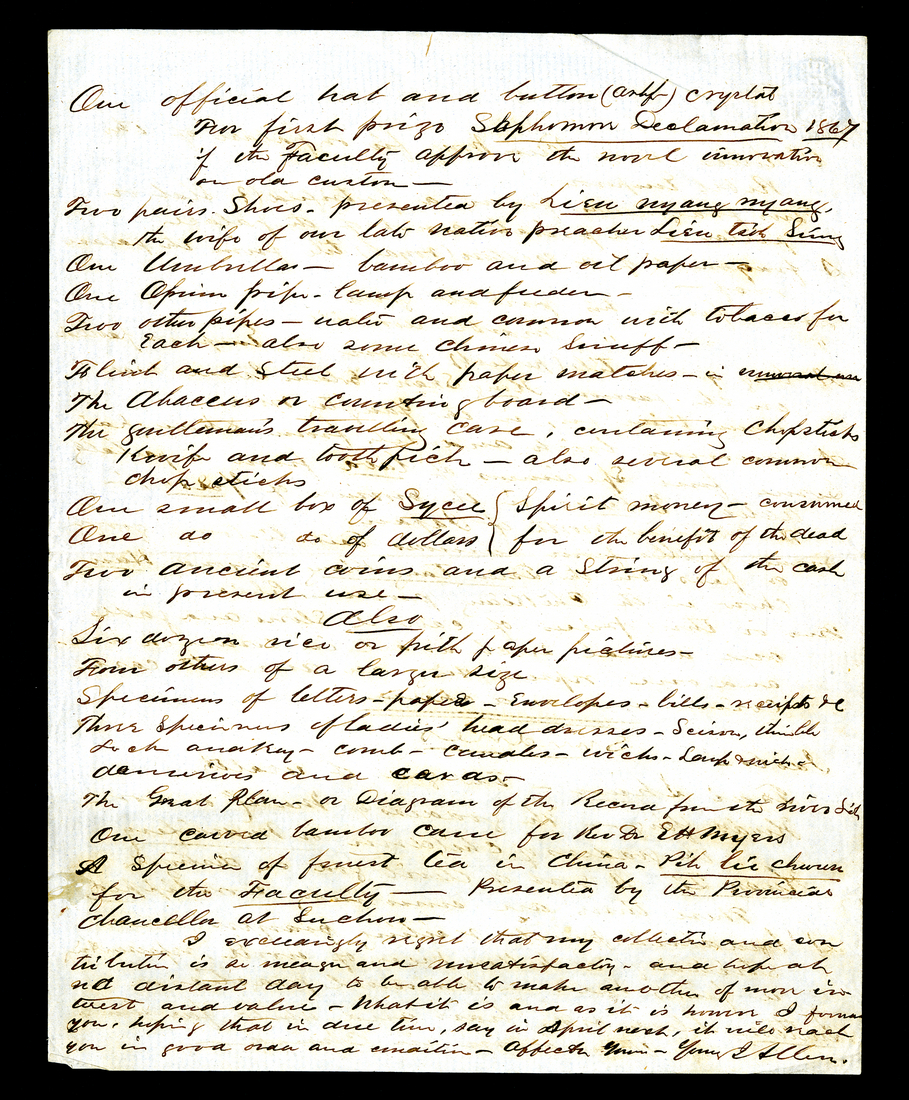 One official hat and button (    ) crystal
For first prize Sophomore Declamation 1867
if the Faculty approve the novel innovation
on old custom —
Two pairs Shoes - presented by Lieu nyang nyang,
the wife of our late native preacher Lieu
One Umbrella — bamboo and oil paper —
One Opium pipe - lamp and feeder -
Two other pipes — and common with tobacco for
Each — also some Chinese Snuff —
Flint and Steel with paper matches - in
The Abaccus or counting board —
The gentleman's travelling case, containing Chopsticks
Knife and tooth pick — also several common
chop sticks
One small box of Sycee { Spirit money - consumed
One do do of dollars { for the benefit of the dead
Two ancient coins and a String of the cash
in present use —
Also
Six dozen rice or pith paper pictures —
Four others of a larger size
Specimens of letters - paper - Envelopes - bills - receipts &c
Three Specimens of ladies' head dresses - Scisors, thimble
Lock and key - comb - candles - wicks - Lamp
dominoes and cards -
The Great Plan - or Diagram of the
One carved bamboo cane for Rev Dr E H Myers
A Specimen of finest tea in China -
for the Faculty — Presented by the Provincial
Chancellor at Suchow —
I exceedingly regret that my collection and con
tribution is so meagre and unsatisfactory - and hope at
not distant day to be able to make another of more in-
terest and value - What it is and as it is however I forward
you, hoping that in due time, say in April next, it will reach
you in good order and condition - Young J Allen.